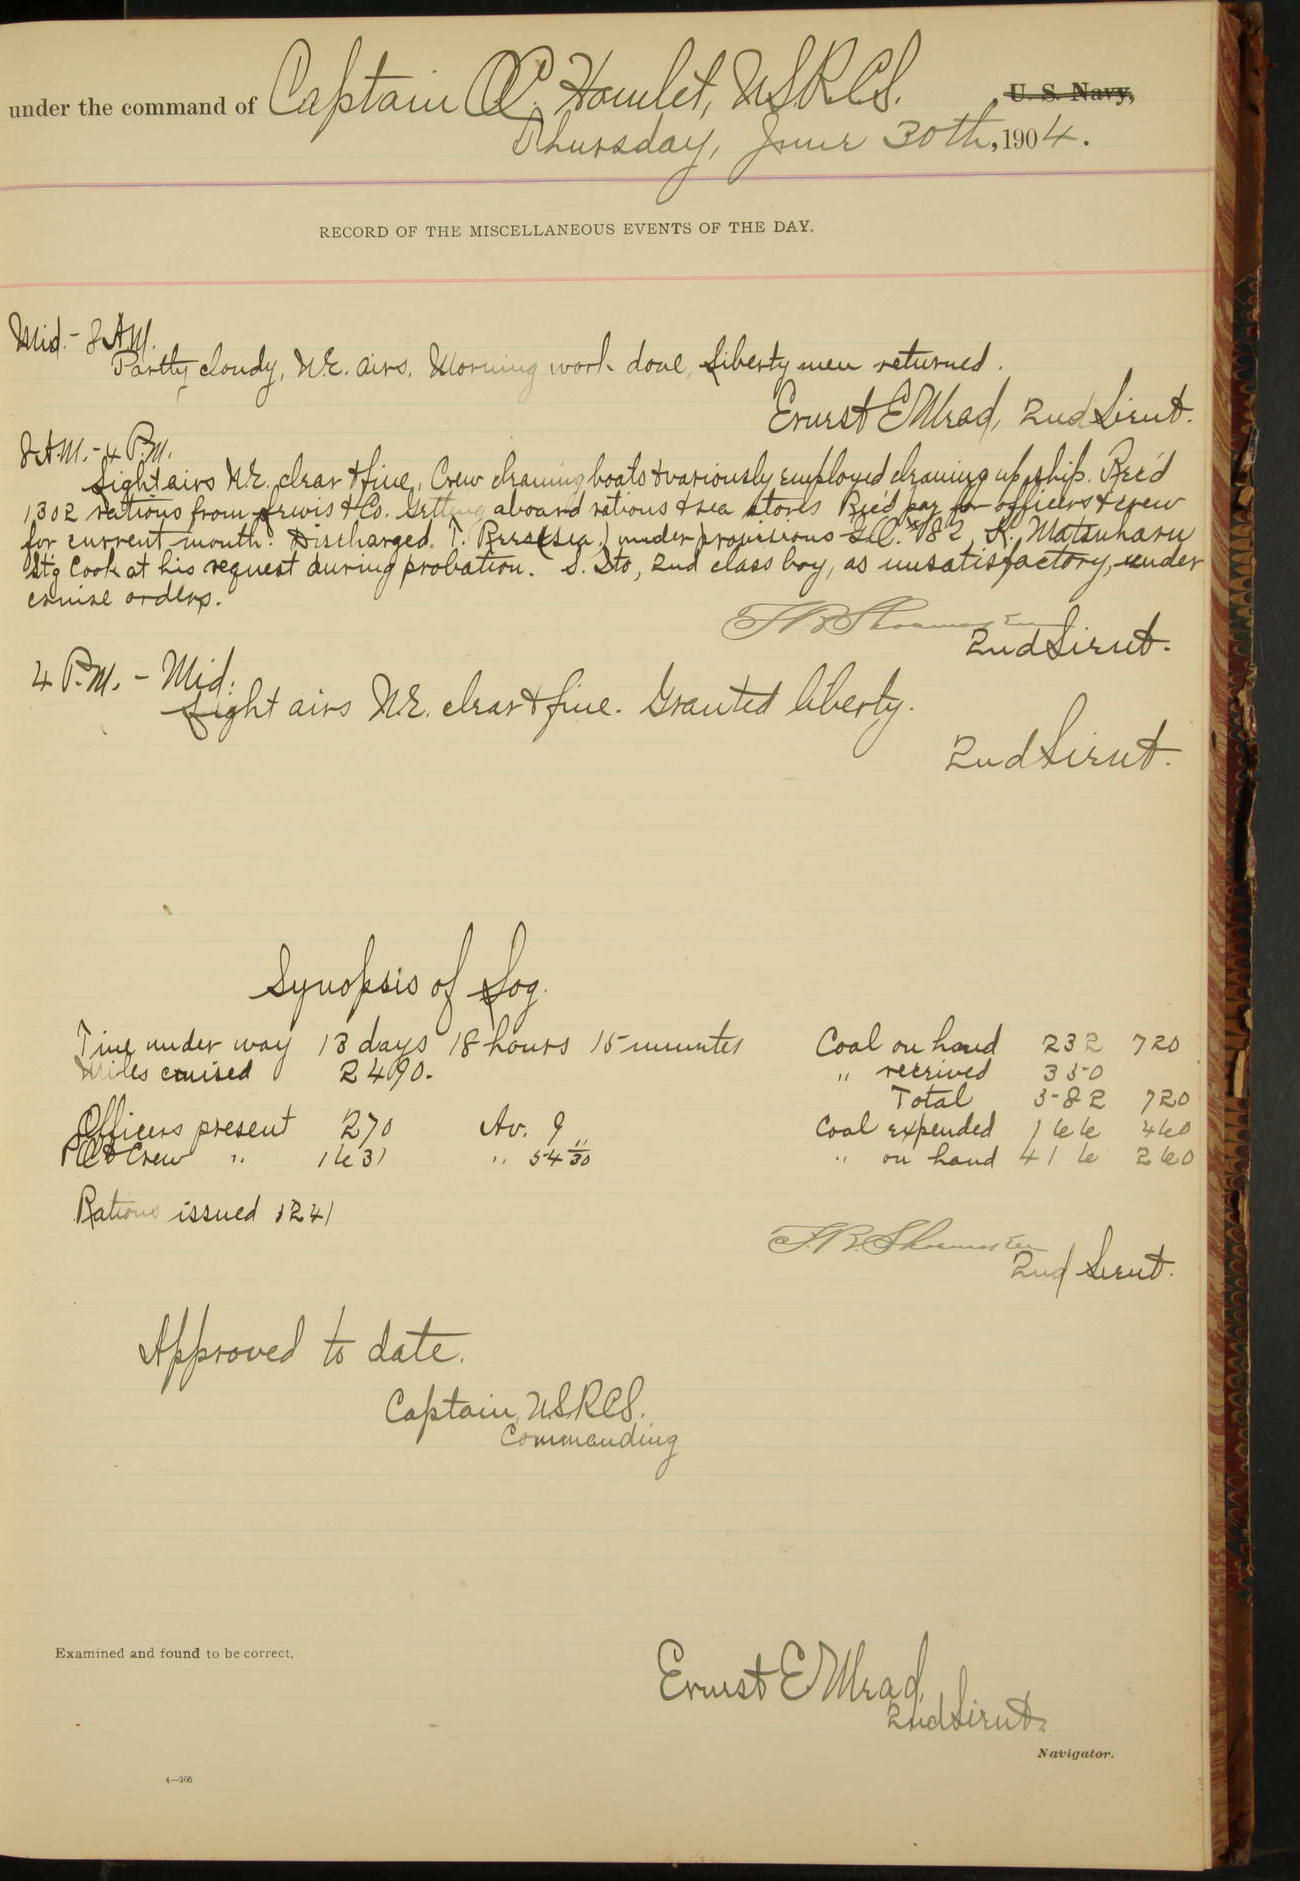 under the command of Captain O.C. Hamlet, U.S.R.C.S. U. S. Navy,
Thursday, June 30th, 1904.
RECORD OF THE MISCELLANEOUS EVENTS OF THE DAY.
Mid. - 8 A.M.
Partly cloudy, N.E. airs. Morning work done, Liberty men returned.
Ernest E Mead, 2nd Lieut.
8 A.M. - 4 P.M.
Light airs N.E. clear & fine, Crew cleaning boats & variously employed cleaning up ship. Rec'd
1302 rations from Lewis & Co. Getting aboard rations & sea stores Rec'd pay for officers & crew
for current month. Discharged T. (sea.) under provisions 82, K. Matsuharu
St'g Cook at his request during probation. S. Sto, 2nd class boy, as unsatisfactory, under
cruise orders.
2nd Lieut.
4 P.M. - Mid:
Light airs N.E. clear & fine. Granted liberty.
2nd Lieut.
Synopsis of Log.
Time under way 13 days 18 hours 15 minutes Coal on hand 232 720
Miles cruised 2490. " received 350
Total 582 720
Officers present 270 Av. 9 Coal expended 166 460
P.O. & Crew " 1631 " 54 11/30 " on hand 416 260
Rations issued 1241
2nd Lieut.
Approved to date.
Captain, U.S.R.C.S.
Commanding
Examined and found to be correct.
Ernest E Mead,
2nd Lieut.
Navigator.
4—266